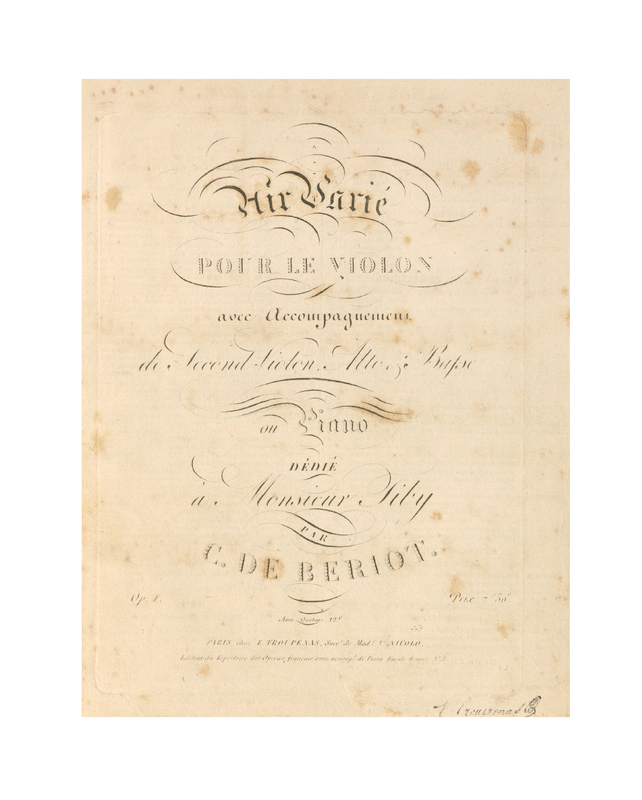 Air Varié
POUR LE VIOLON
avec Accompagnement
de Second Violon, Alto & Basse
ou Piano
DÉDIÉ
à Monsieur Tiby
PAR
C. DE BERIOT.
Op. 1.
Prix
Avec Quatuor
PARIS, chez E. TROUPENAS, Succr. de Made. Ve. NICOLO,
Editeur du Répertoire des Opéras français avec accompt. de Piano Rue de
E. Troupenas